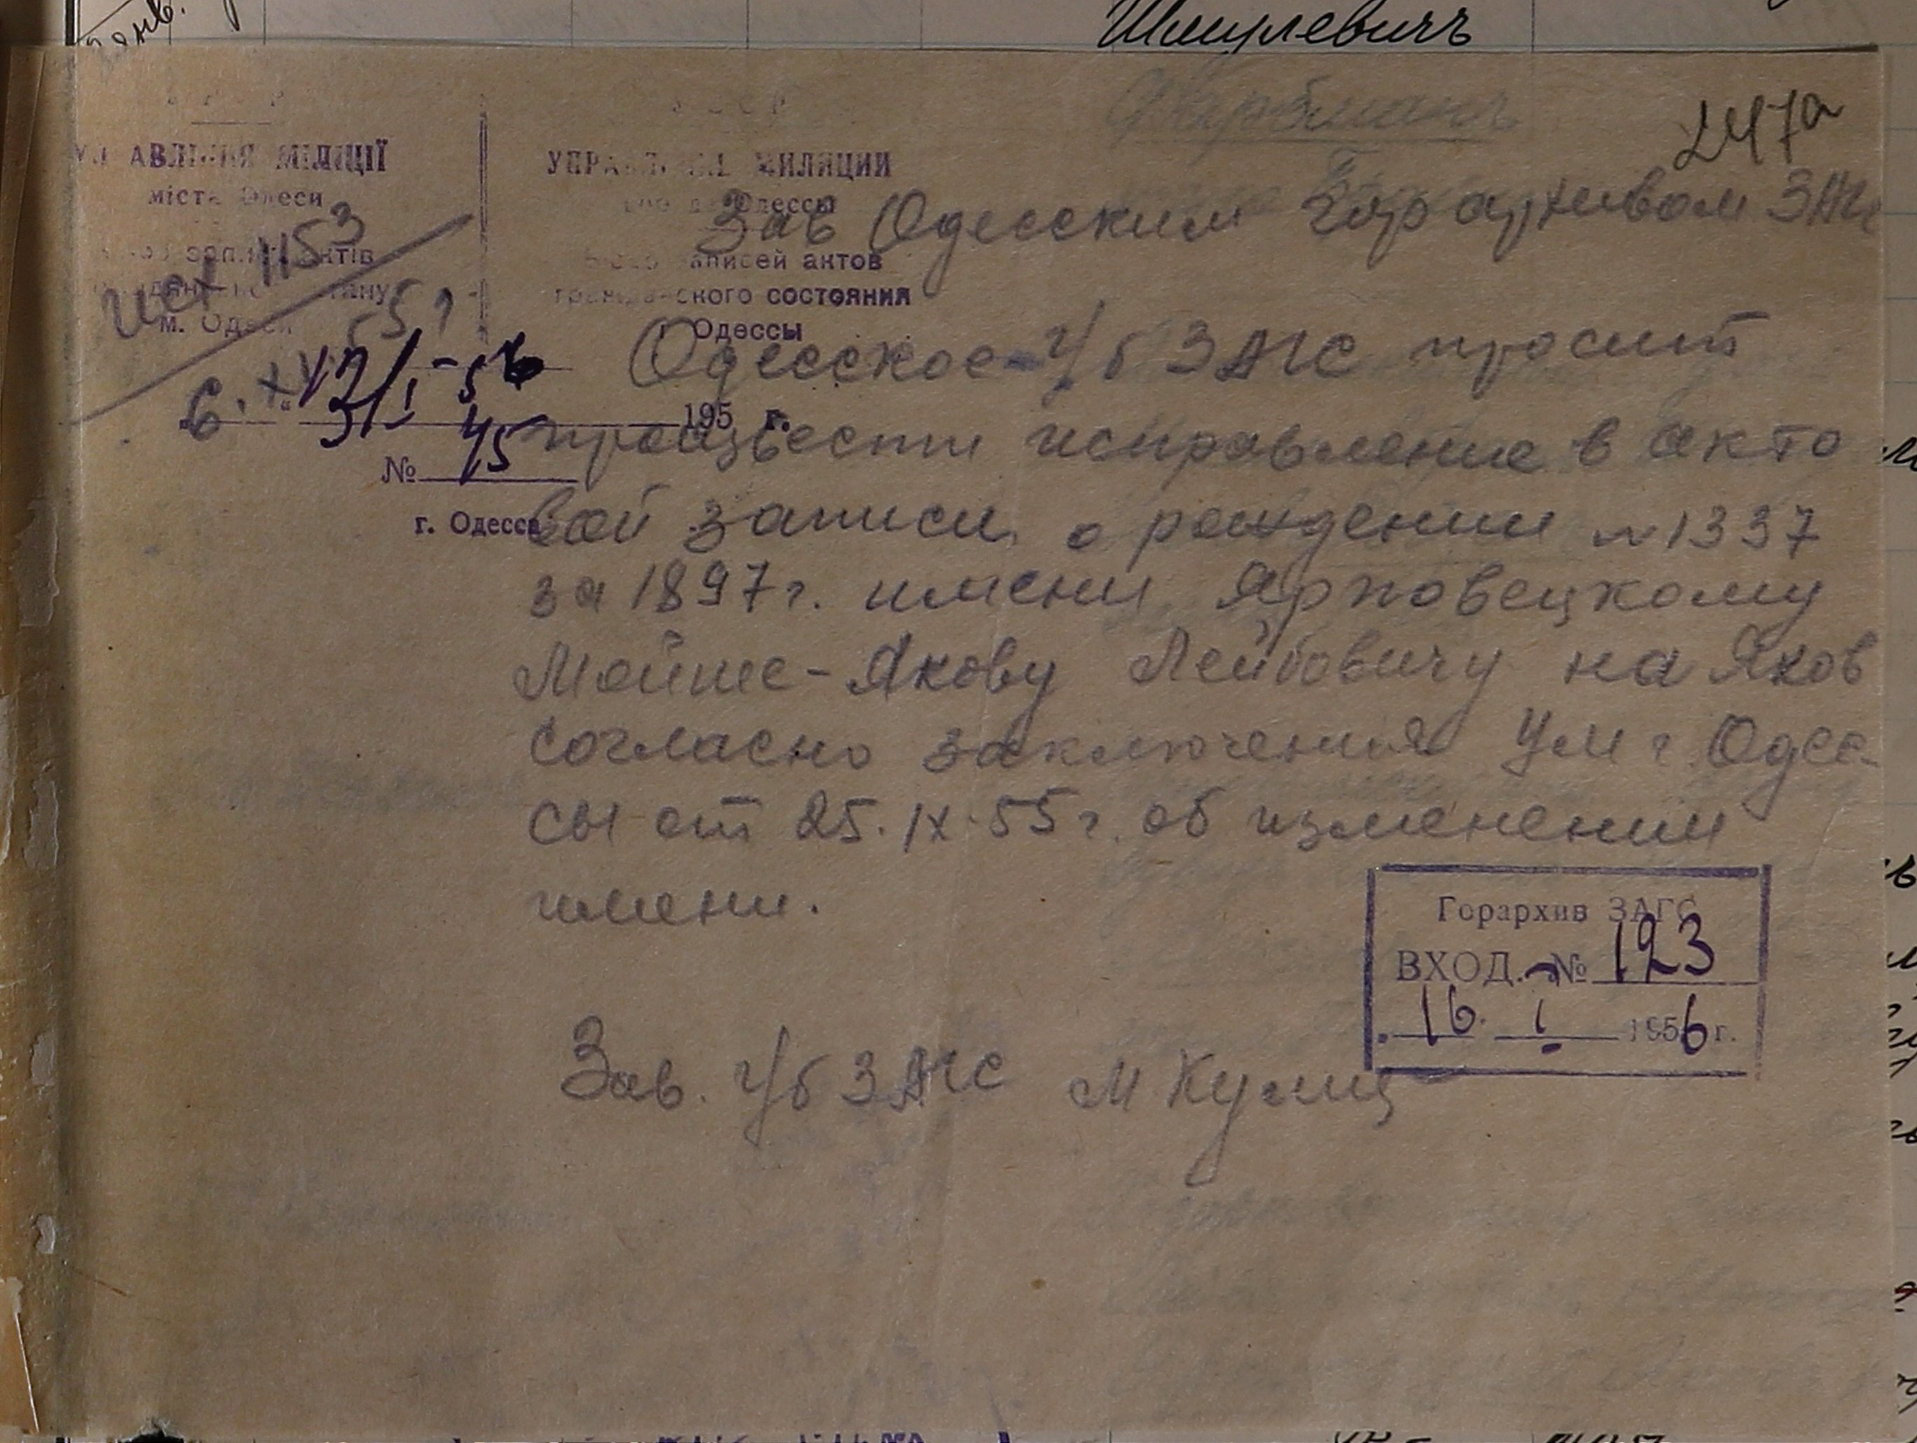 Шмулевичъ
247а
УПРАВЛІННЯ МІЛІЦІЇ
міста Одеси
м. Одеси
УПРАВЛЕНИЕ МИЛИЦИИ
города Одессы
Бюро записей актов
гражданского состояния
г. Одессы
исх 1153
12/I-56
195 г.
№ 45
г. Одесса
Зав Одесским Горархивом ЗАГС
Одесское г/б ЗАГС просит
произвести исправление в акто
вой записи о рождении №1337
за 1897 г. имени Ярховецкому
Мойше-Якову Лейбовичу на Яков
согласно заключения УМ г. Одес-
сы от 25.IX.55 г. об изменении
имени.
Горархив ЗАГС
ВХОД. № 123
16. I 1956 г.
Зав. г/б ЗАГС